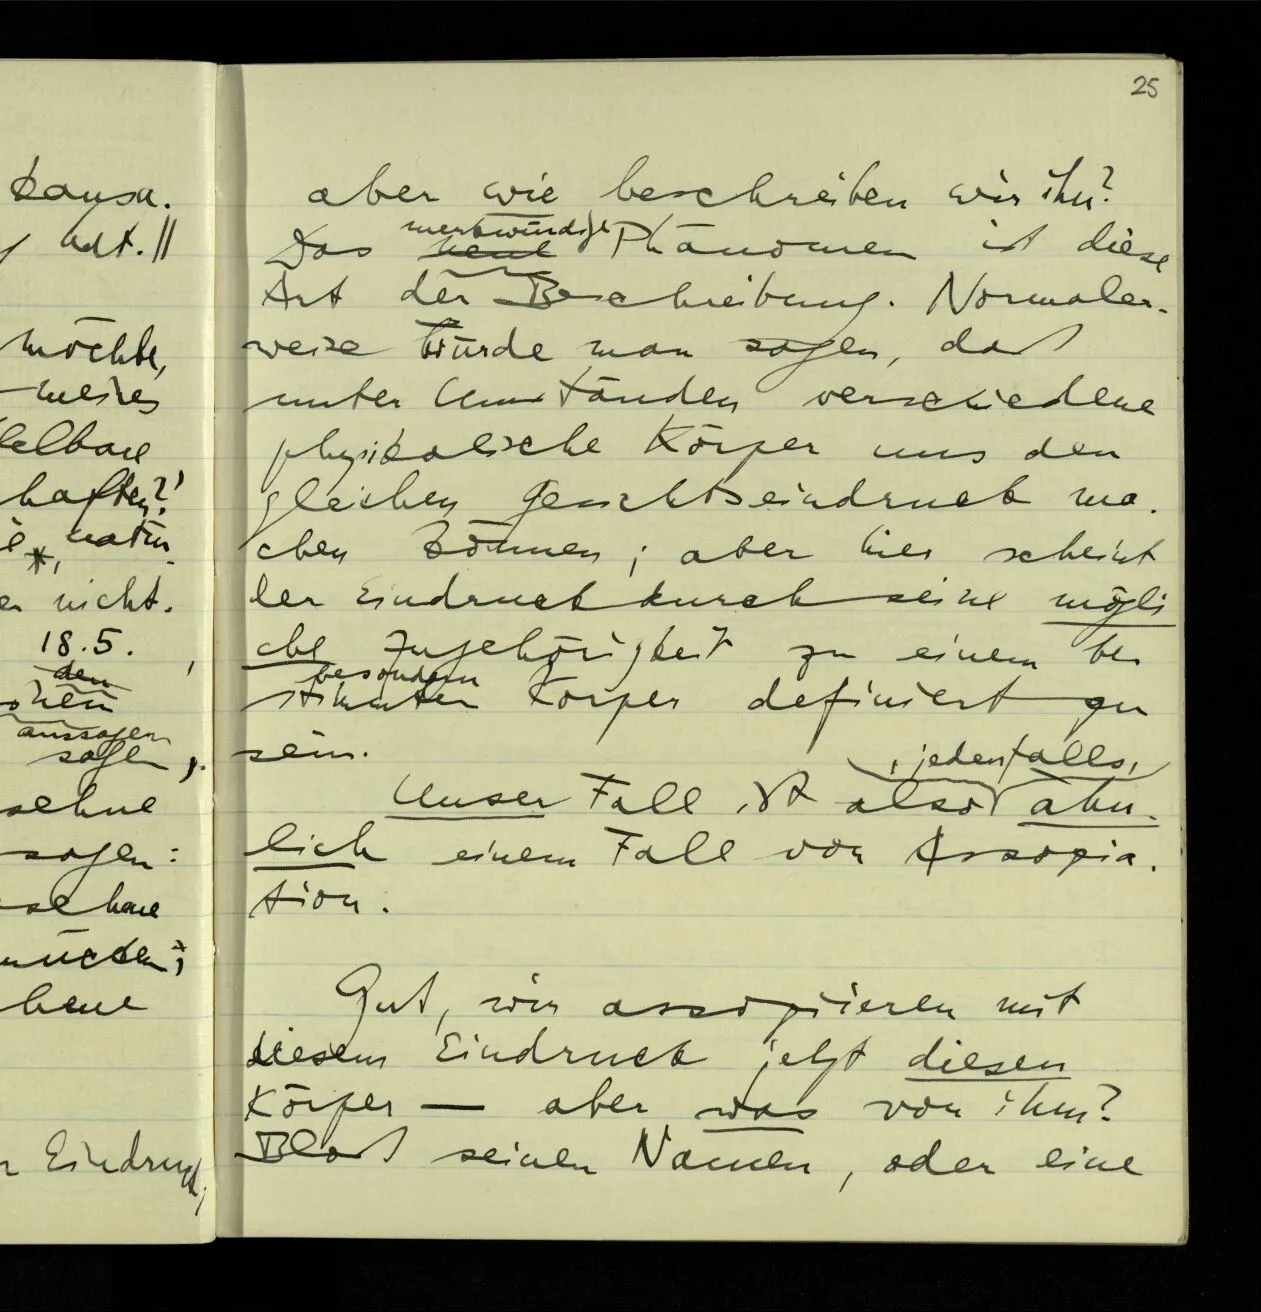 25
Kausa.
Adt. ||
möchte,
meines
haften?'
natür
nicht.
18.5.
den
aussagen
sagen,
sehne
sagen:
Eindruck,
aber wie beschreiben wir ihn?
merkwürdige
Das neue Phänomen ist diese
Art der Beschreibung. Normaler-
weise würde man sagen, daß
unter Umständen verschiedene
physikalische Körper uns den
gleichen Gesichtseindruck ma-
chen können; aber hier scheint
der Eindruck durch seine mögli
che Zugehörigkeit zu einem be
besondern
stimmten Körper definiert zu
sein.
, jedenfalls,
Unser Fall ist also ähn-
lich einem Fall von Assozia-
tion.
Gut, wir assoziieren mit
diesem Eindruck jetzt diesen
Körper — aber was von ihm?
Bloß seinen Namen, oder eine